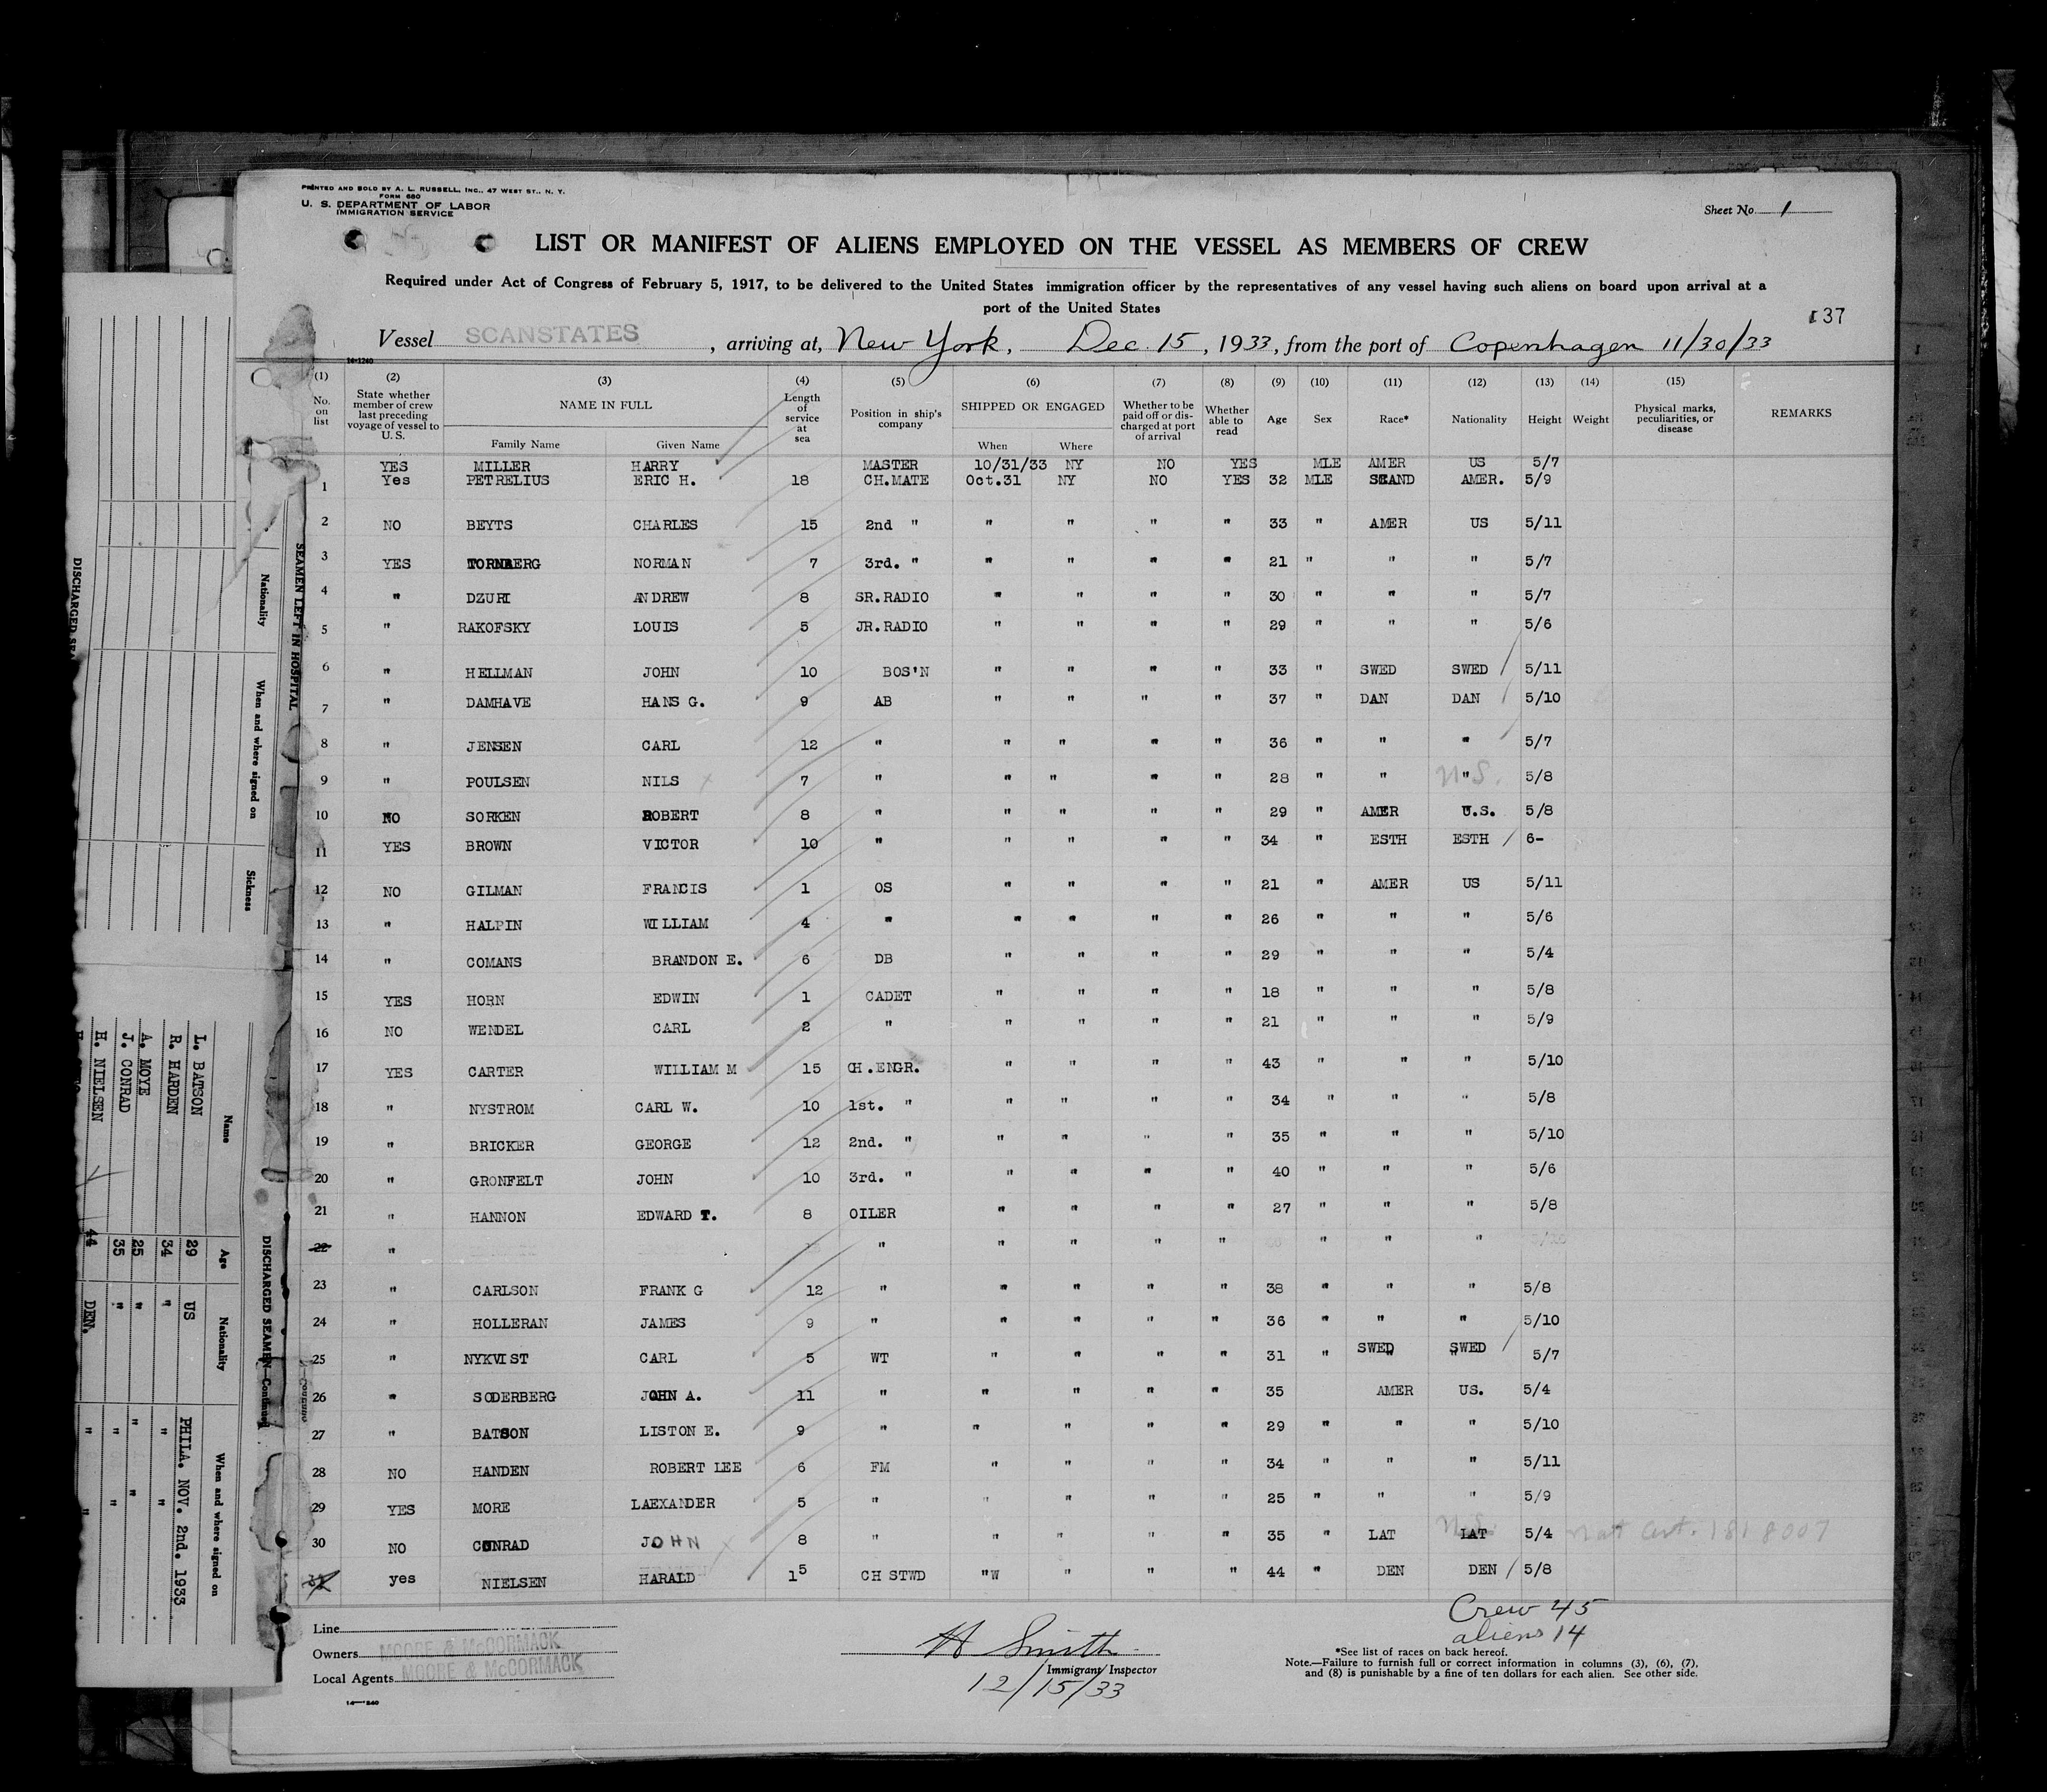 PRINTED AND SOLD BY A. L. RUSSELL, INC., 47 WEST ST., N. Y.
FORM 680
U. S. DEPARTMENT OF LABOR
IMMIGRATION SERVICE
Sheet No. 1
LIST OR MANIFEST OF ALIENS EMPLOYED ON THE VESSEL AS MEMBERS OF CREW
Required under Act of Congress of February 5, 1917, to be delivered to the United States immigration officer by the representatives of any vessel having such aliens on board upon arrival at a
port of the United States
137
Vessel SCANSTATES, arriving at, New York, Dec. 15, 1933, from the port of Copenhagen 11/30/33
14-1240
(1) (2) (3) (4) (5) (6) (7) (8) (9) (10) (11) (12) (13) (14) (15)
No. on list State whether member of crew last preceding voyage of vessel to U. S. NAME IN FULL Length of service at sea Position in ship's company SHIPPED OR ENGAGED Whether to be paid off or discharged at port of arrival Whether able to read Age Sex Race* Nationality Height Weight Physical marks, peculiarities, or disease REMARKS
Family Name Given Name When Where
YES MILLER HARRY MASTER 10/31/33 NY NO YES MLE AMER US 5/7
1 Yes PETRELIUS ERIC H. 18 CH.MATE Oct.31 NY NO YES 32 MLE SCAND AMER. 5/9
2 NO BEYTS CHARLES 15 2nd " " " " " 33 " AMER US 5/11
3 YES TORNBERG NORMAN 7 3rd. " " " " " 21 " " " 5/7
4 " DZURI ANDREW 8 SR.RADIO " " " " 30 " " " 5/7
5 " RAKOFSKY LOUIS 5 JR.RADIO " " " " 29 " " " 5/6
6 " HELLMAN JOHN 10 BOS'N " " " " 33 " SWED SWED / 5/11
7 " DAMHAVE HANS G. 9 AB " " " " 37 " DAN DAN / 5/10
8 " JENSEN CARL 12 " " " " " 36 " " " / 5/7
9 " POULSEN NILS x 7 " " " " " 28 " " " U.S. 5/8
10 NO SORKEN ROBERT 8 " " " " " 29 " AMER U.S. 5/8
11 YES BROWN VICTOR 10 " " " " " 34 " ESTH ESTH / 6-
12 NO GILMAN FRANCIS 1 OS " " " " 21 " AMER US 5/11
13 " HALPIN WILLIAM 4 " " " " " 26 " " " 5/6
14 " COMANS BRANDON E. 6 DB " " " " 29 " " " 5/4
15 YES HORN EDWIN 1 CADET " " " " 18 " " " 5/8
16 NO WENDEL CARL 2 " " " " " 21 " " " 5/9
17 YES CARTER WILLIAM M 15 CH.ENGR. " " " " 43 " " " 5/10
18 " NYSTROM CARL W. 10 1st. " " " " " 34 " " " 5/8
19 " BRICKER GEORGE 12 2nd. " " " " " 35 " " " 5/10
20 " GRONFELT JOHN 10 3rd. " " " " " 40 " " " 5/6
21 " HANNON EDWARD T. 8 OILER " " " " 27 " " " 5/8
22 " " " " " " " " "
23 " CARLSON FRANK G 12 " " " " " 38 " " " 5/8
24 " HOLLERAN JAMES 9 " " " " " 36 " " " 5/10
25 " NYKVIST CARL 5 WT " " " " 31 " SWED SWED / 5/7
26 " SODERBERG JOHN A. 11 " " " " " 35 AMER US. 5/4
27 " BATSON LISTON E. 9 " " " " " 29 " " " 5/10
28 NO HANDEN ROBERT LEE 6 FM " " " " 34 " " " 5/11
29 YES MORE LAEXANDER 5 " " " " " 25 " " " 5/9
30 NO CONRAD JOHN x 8 " " " " " 35 " LAT LAT 5/4 Nat Cert. 1818007
31 yes NIELSEN HARALD 15 CH STWD "W " " " 44 " DEN DEN / 5/8
Crew 45
aliens 14
Line
Owners MOORE & McCORMACK
Local Agents MOORE & McCORMACK
14-1240
H Smith
Immigrant Inspector
12/15/33
*See list of races on back hereof.
Note.—Failure to furnish full or correct information in columns (3), (6), (7),
and (8) is punishable by a fine of ten dollars for each alien. See other side.
SEAMEN LEFT IN HOSPITAL
Nationality When and where signed on Sickness
DISCHARGED SEAMEN—Continued
Name Age Nationality When and where signed on
L. BATSON 29 US PHILA. NOV. 2nd. 1933
R. HARDEN 34 " " "
A. MOYE 25 " " "
J. CONRAD 35 " " "
H. NIELSEN 44 DEN. " "